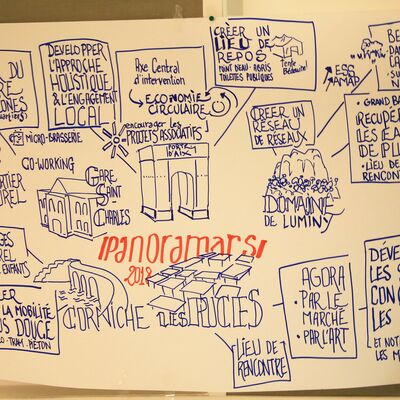 DU
RE
ONES
uartiers)
DEVELOPPER
L'APPROCHE
HOLISTIQUE
& L'ENGAGEMENT
LOCAL
MICRO-BRASSERIE
CO-WORKING
Axe Central
d'intervention
ECONOMIE
CIRCULAIRE
encourager les
PROJETS ASSOCIATIFS
PORTE
D'AIX
CREER UN
LIEU DE
REPOS
POINT D'EAU - ABRIS
TOILETTES PUBLIQUES
Tente
Bédouine!
ESS
AMAP
CREER UN
RESEAU
DE RESEAUX
DOMAINE
DE LUMINY
GRAND BA
RECUPER
LES EA
DE PLU
• LIEU DE
RENCONT
GARE
SAINT
CHARLES
RTIER
UREL
PANORAMARS
2018
GES
REL
ENFANTS
ER
LA MOBILITÉ
US DOUCE
LO - TRAM - PIETON
CORNICHE
LES PUCES
LIEU DE
RENCONTRE
AGORA
• PAR LE
MARCHÉ
• PAR L'ART
DÉVE
LES S
CON
LES
ET NOT
LES M